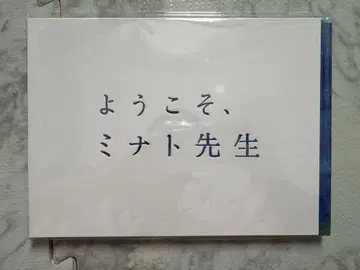 ようこそ、
ミナト先生